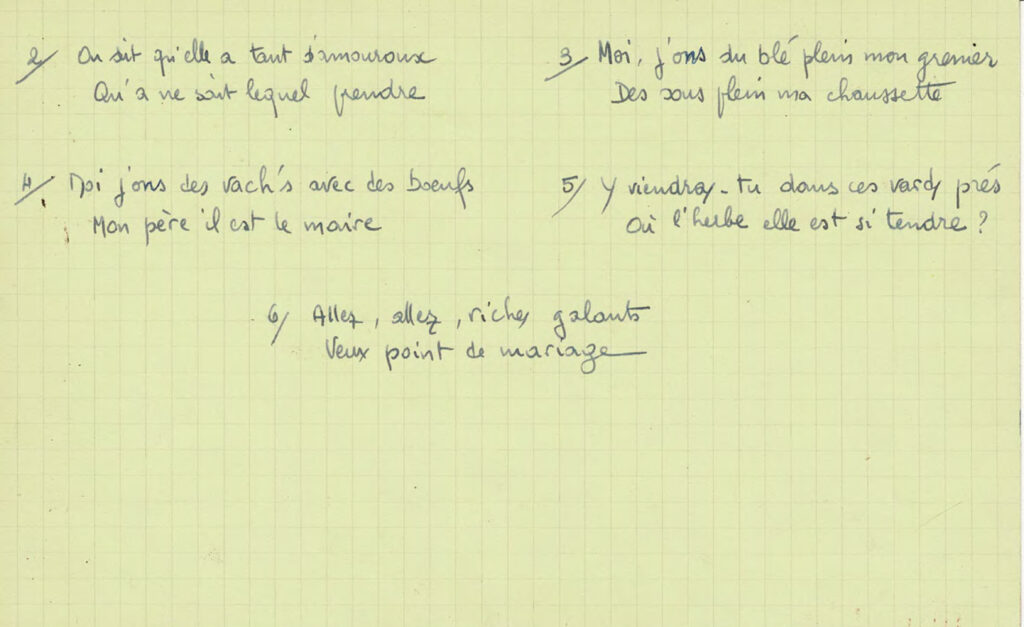 2/ On dit qu'elle a tant d'amouroux
Qu'a ne sait lequel prendre
3/ Moi, j'ons du blé plein mon grenier
Des sous plein ma chaussette
4/ Moi j'ons des vach's avec des boeufs
Mon père il est le maire
5/ Y viendras-tu dans ces vards prés
Où l'herbe elle est si tendre ?
6/ Allez, allez, riches galants
Veux point de mariage